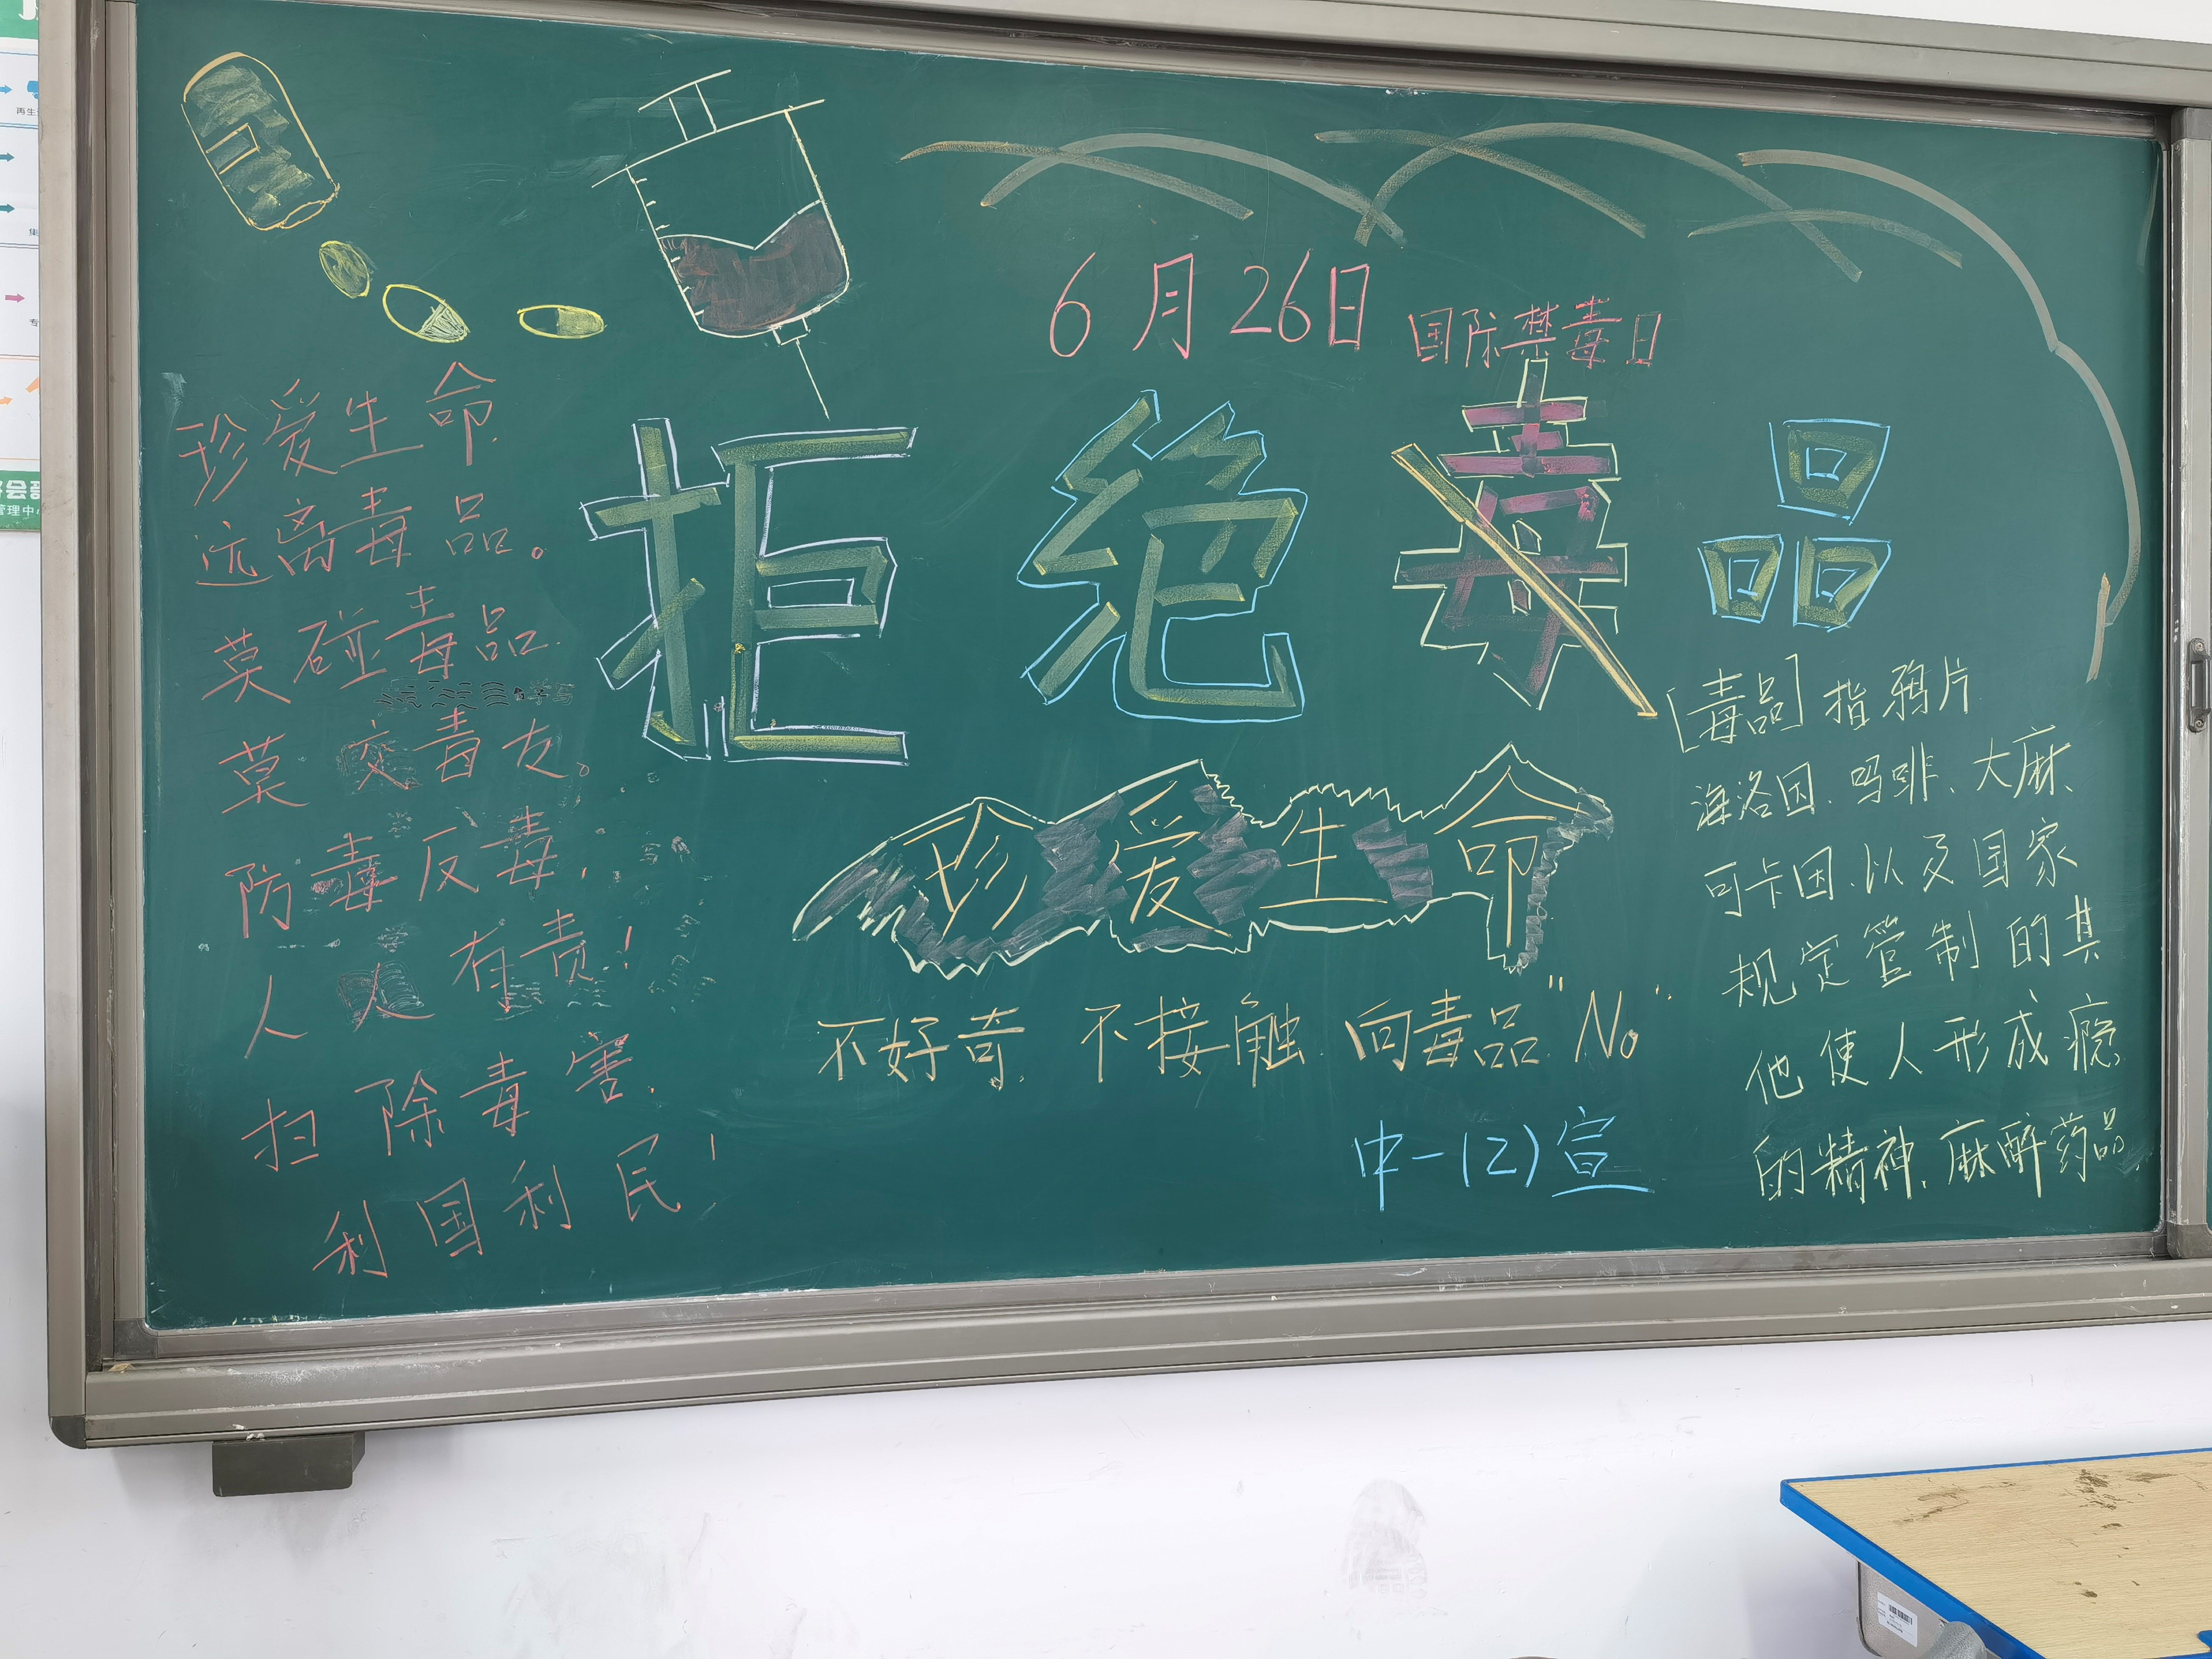 6月26日 国际禁毒日
拒绝毒品
珍爱生命
远离毒品。
莫碰毒品
莫交毒友。
防毒反毒,
人人有责!
扫除毒害,
利国利民!
珍爱生命
不好奇、不接触、向毒品"No".
中一(2)宣
[毒品]指鸦片
海洛因、吗啡、大麻、
可卡因、以及国家
规定管制的其
他使人形成瘾
的精神、麻醉药品
再生
集
专
管理中心